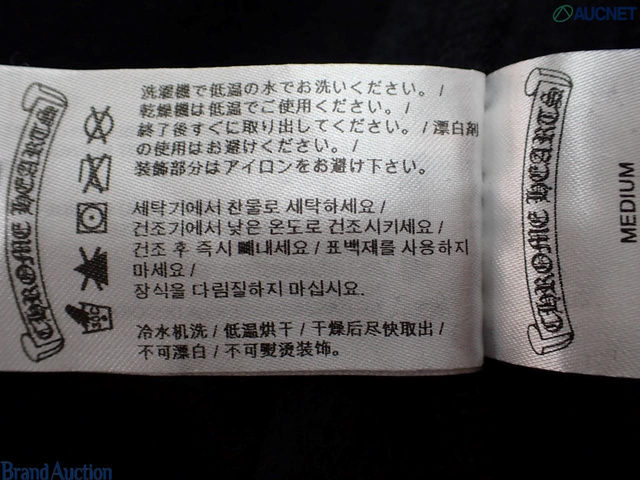 AUCNET
CHROME HEARTS
洗濯機で低温の水でお洗いください。/
乾燥機は低温でご使用ください。/
終了後すぐに取り出してください。/ 漂白剤
の使用はお避けください。/
装飾部分はアイロンをお避け下さい。
세탁기에서 찬물로 세탁하세요 /
건조기에서 낮은 온도로 건조시키세요 /
건조 후 즉시 빼내세요 / 표백재를 사용하지
마세요 /
장식을 다림질하지 마십시요.
冷水机洗 / 低温烘干 / 干燥后尽快取出 /
不可漂白 / 不可熨烫装饰。
30C
CHROME HEARTS
MEDIUM
Brand Auction